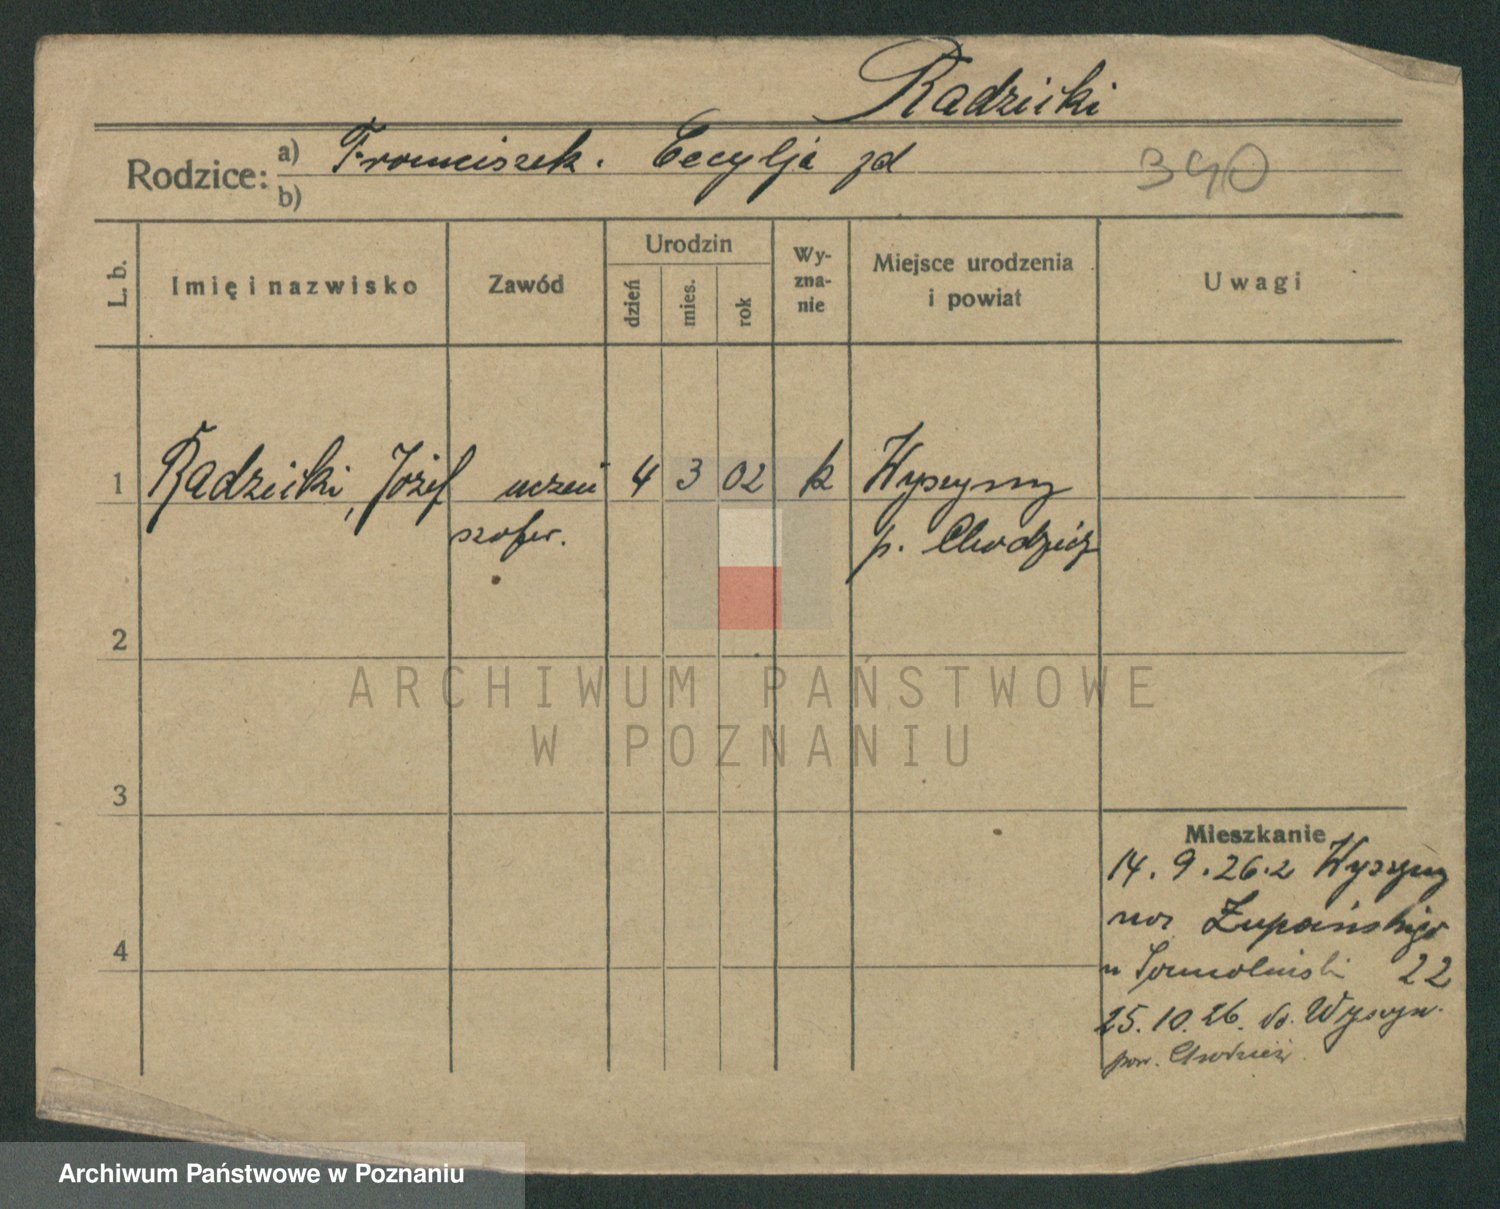 Radzicki
Rodzice: a) Franciszek. Cecylja zd
b)
390
L. b. Imię i nazwisko Zawód Urodzin dzień mies. rok Wyznanie Miejsce urodzenia i powiat Uwagi
1 Radzicki, Józef uczeń 4 3 02 k Wyszyny
szofer. p. Chodzież
2
ARCHIWUM PAŃSTWOWE
W POZNANIU
3
Mieszkanie
14. 9. 26. z Wyszyny
4
Żupańskiego
22
25. 10. 26. do. Wyszyn.
pow. Chodzież.
Archiwum Państwowe w Poznaniu